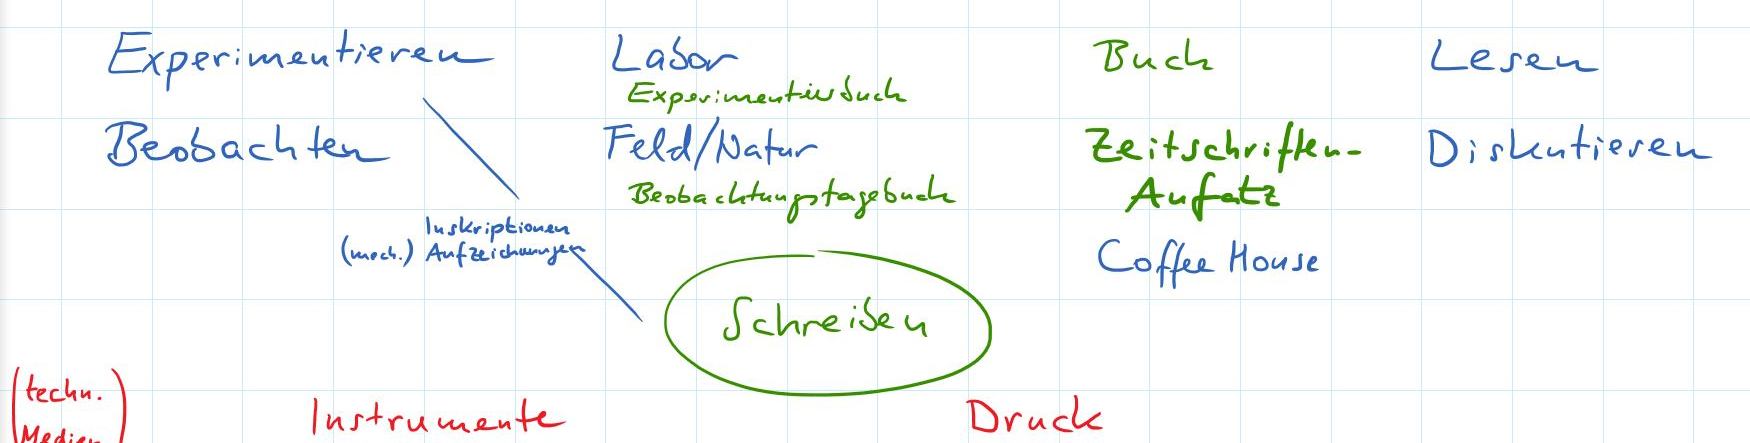 Experimentieren Labor Buch Lesen
Experimentierbuch
Beobachten Feld/Natur Zeitschriften- Diskutieren
Beobachtungstagebuch Aufsatz
Inskriptionen
(mech.) Aufzeichnungen Coffee House
Schreiben
(techn. Instrumente Druck
Medien